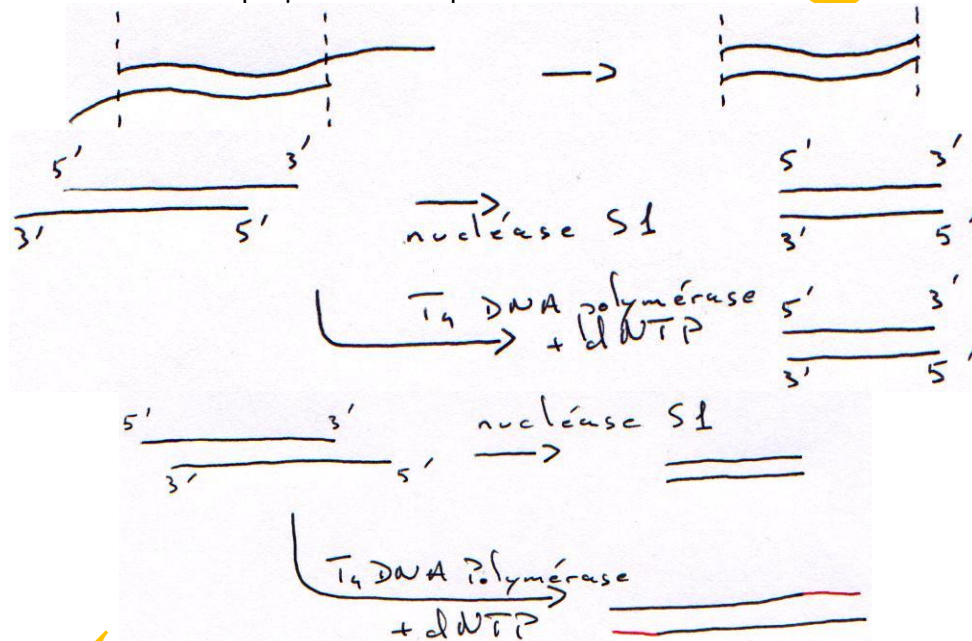 5' 3'
3' 5'
nucléase S1
5' 3'
3' 5'
T4 DNA polymérase
+ dNTP
5' 3'
3' 5'
5' 3'
3' 5'
nucléase S1
T4 DNA Polymérase
+ dNTP